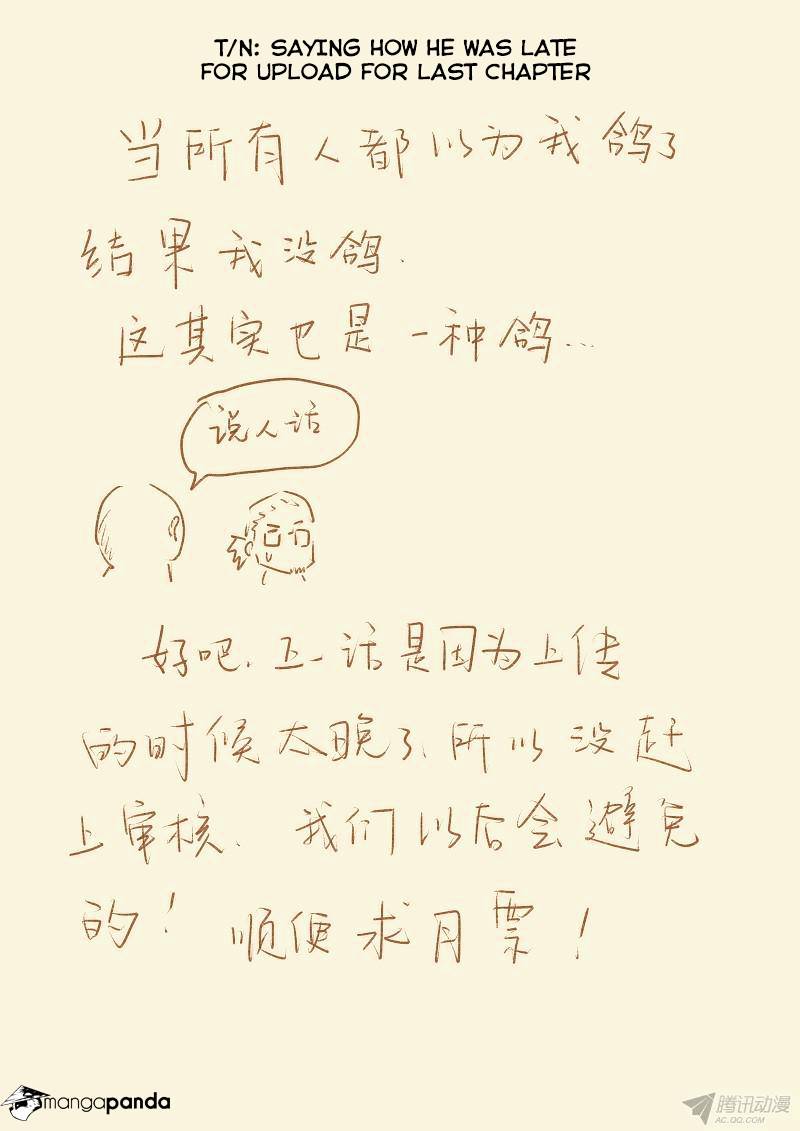 T/N: SAYING HOW HE WAS LATE
FOR UPLOAD FOR LAST CHAPTER
当所有人都以为我鸽了
结果我没鸽.
这其实也是一种鸽...
说人话
好吧.上一话是因为上传
的时候太晚了、所以没赶
上审核、我们以后会避免
的!顺便求月票!
mangapanda
腾讯动漫
AC.QQ.COM